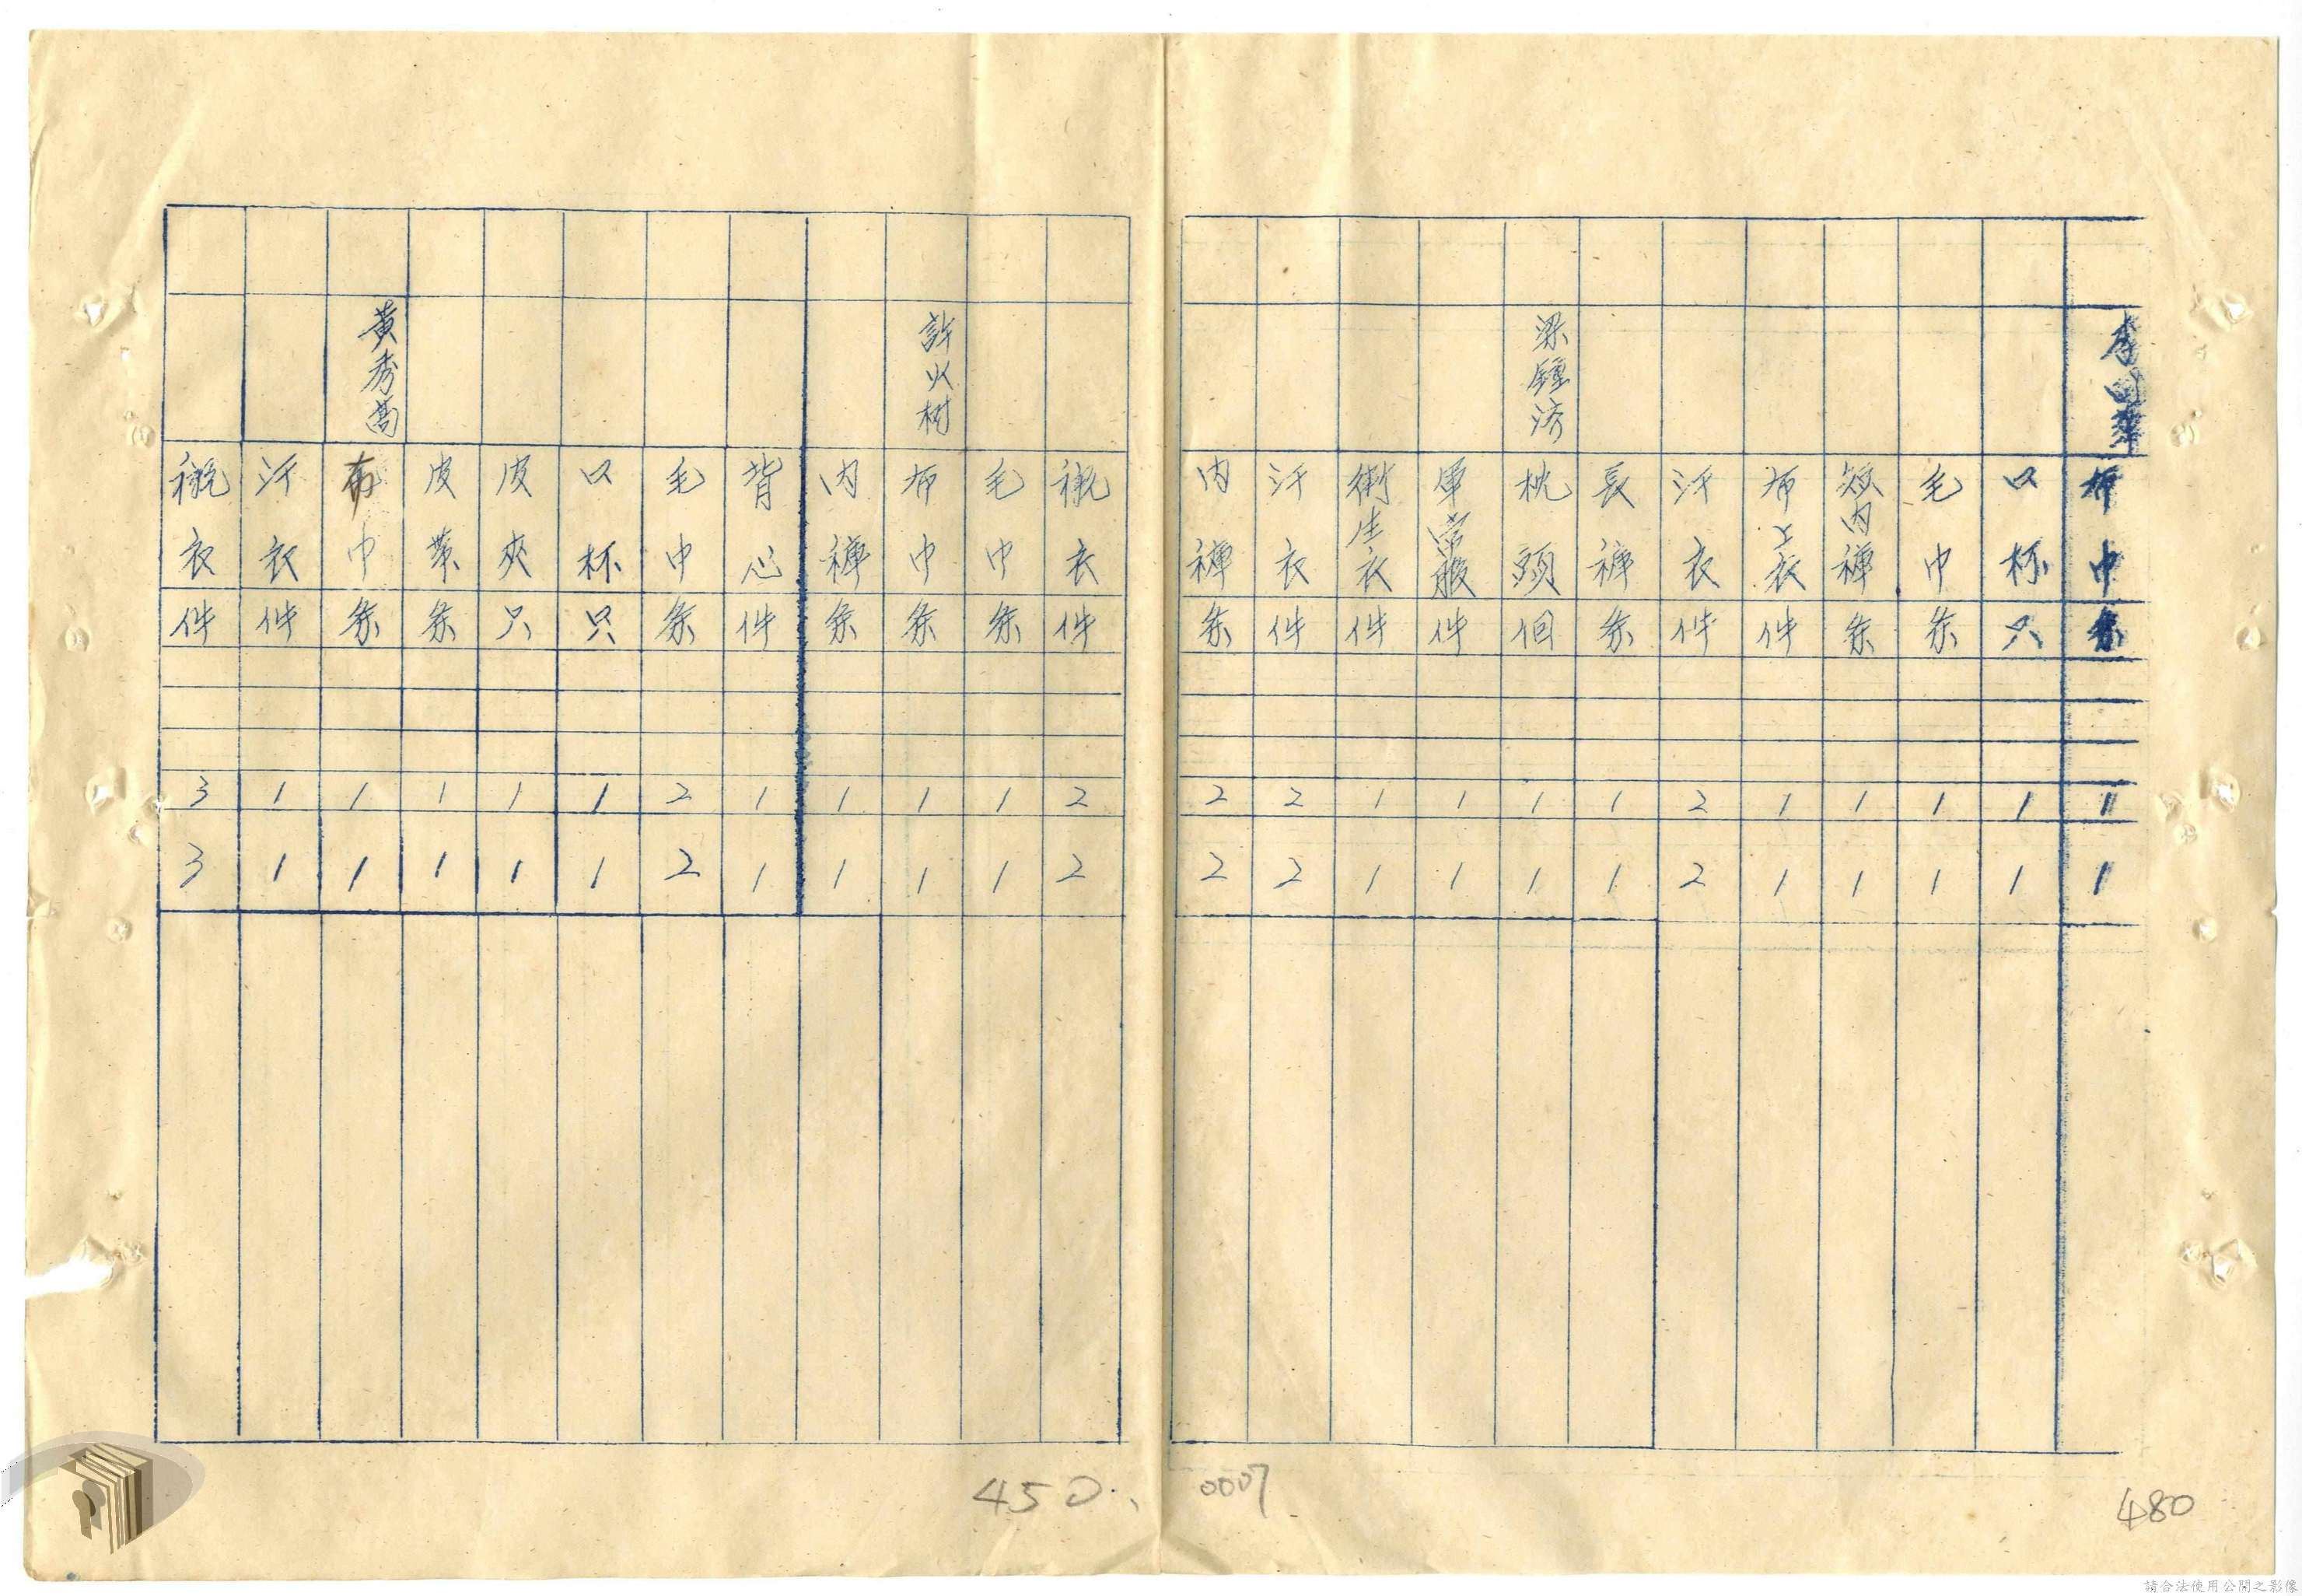 李
布巾 条 1 1
口杯 只 1 1
毛巾 条 1 1
短内褲 条 1 1
布上衣 件 1 1
汗衣 件 2 2
長褲 条 1 1
梁鍾济
枕頭 個 1 1
軍常服 件 1 1
衛生衣 件 1 1
汗衣 件 2 2
内褲 条 2 2
襯衣 件 2 2
毛巾 条 1 1
許火树
布巾 条 1 1
内褲 条 1 1
背心 件 1 1
毛巾 条 2 2
口杯 只 1 1
皮夾 只 1 1
皮帶 条 1 1
黃秀
布巾 条 1 1
汗衣 件 1 1
襯衣 件 3 3
480
0007
450
請合法使用公開之影像